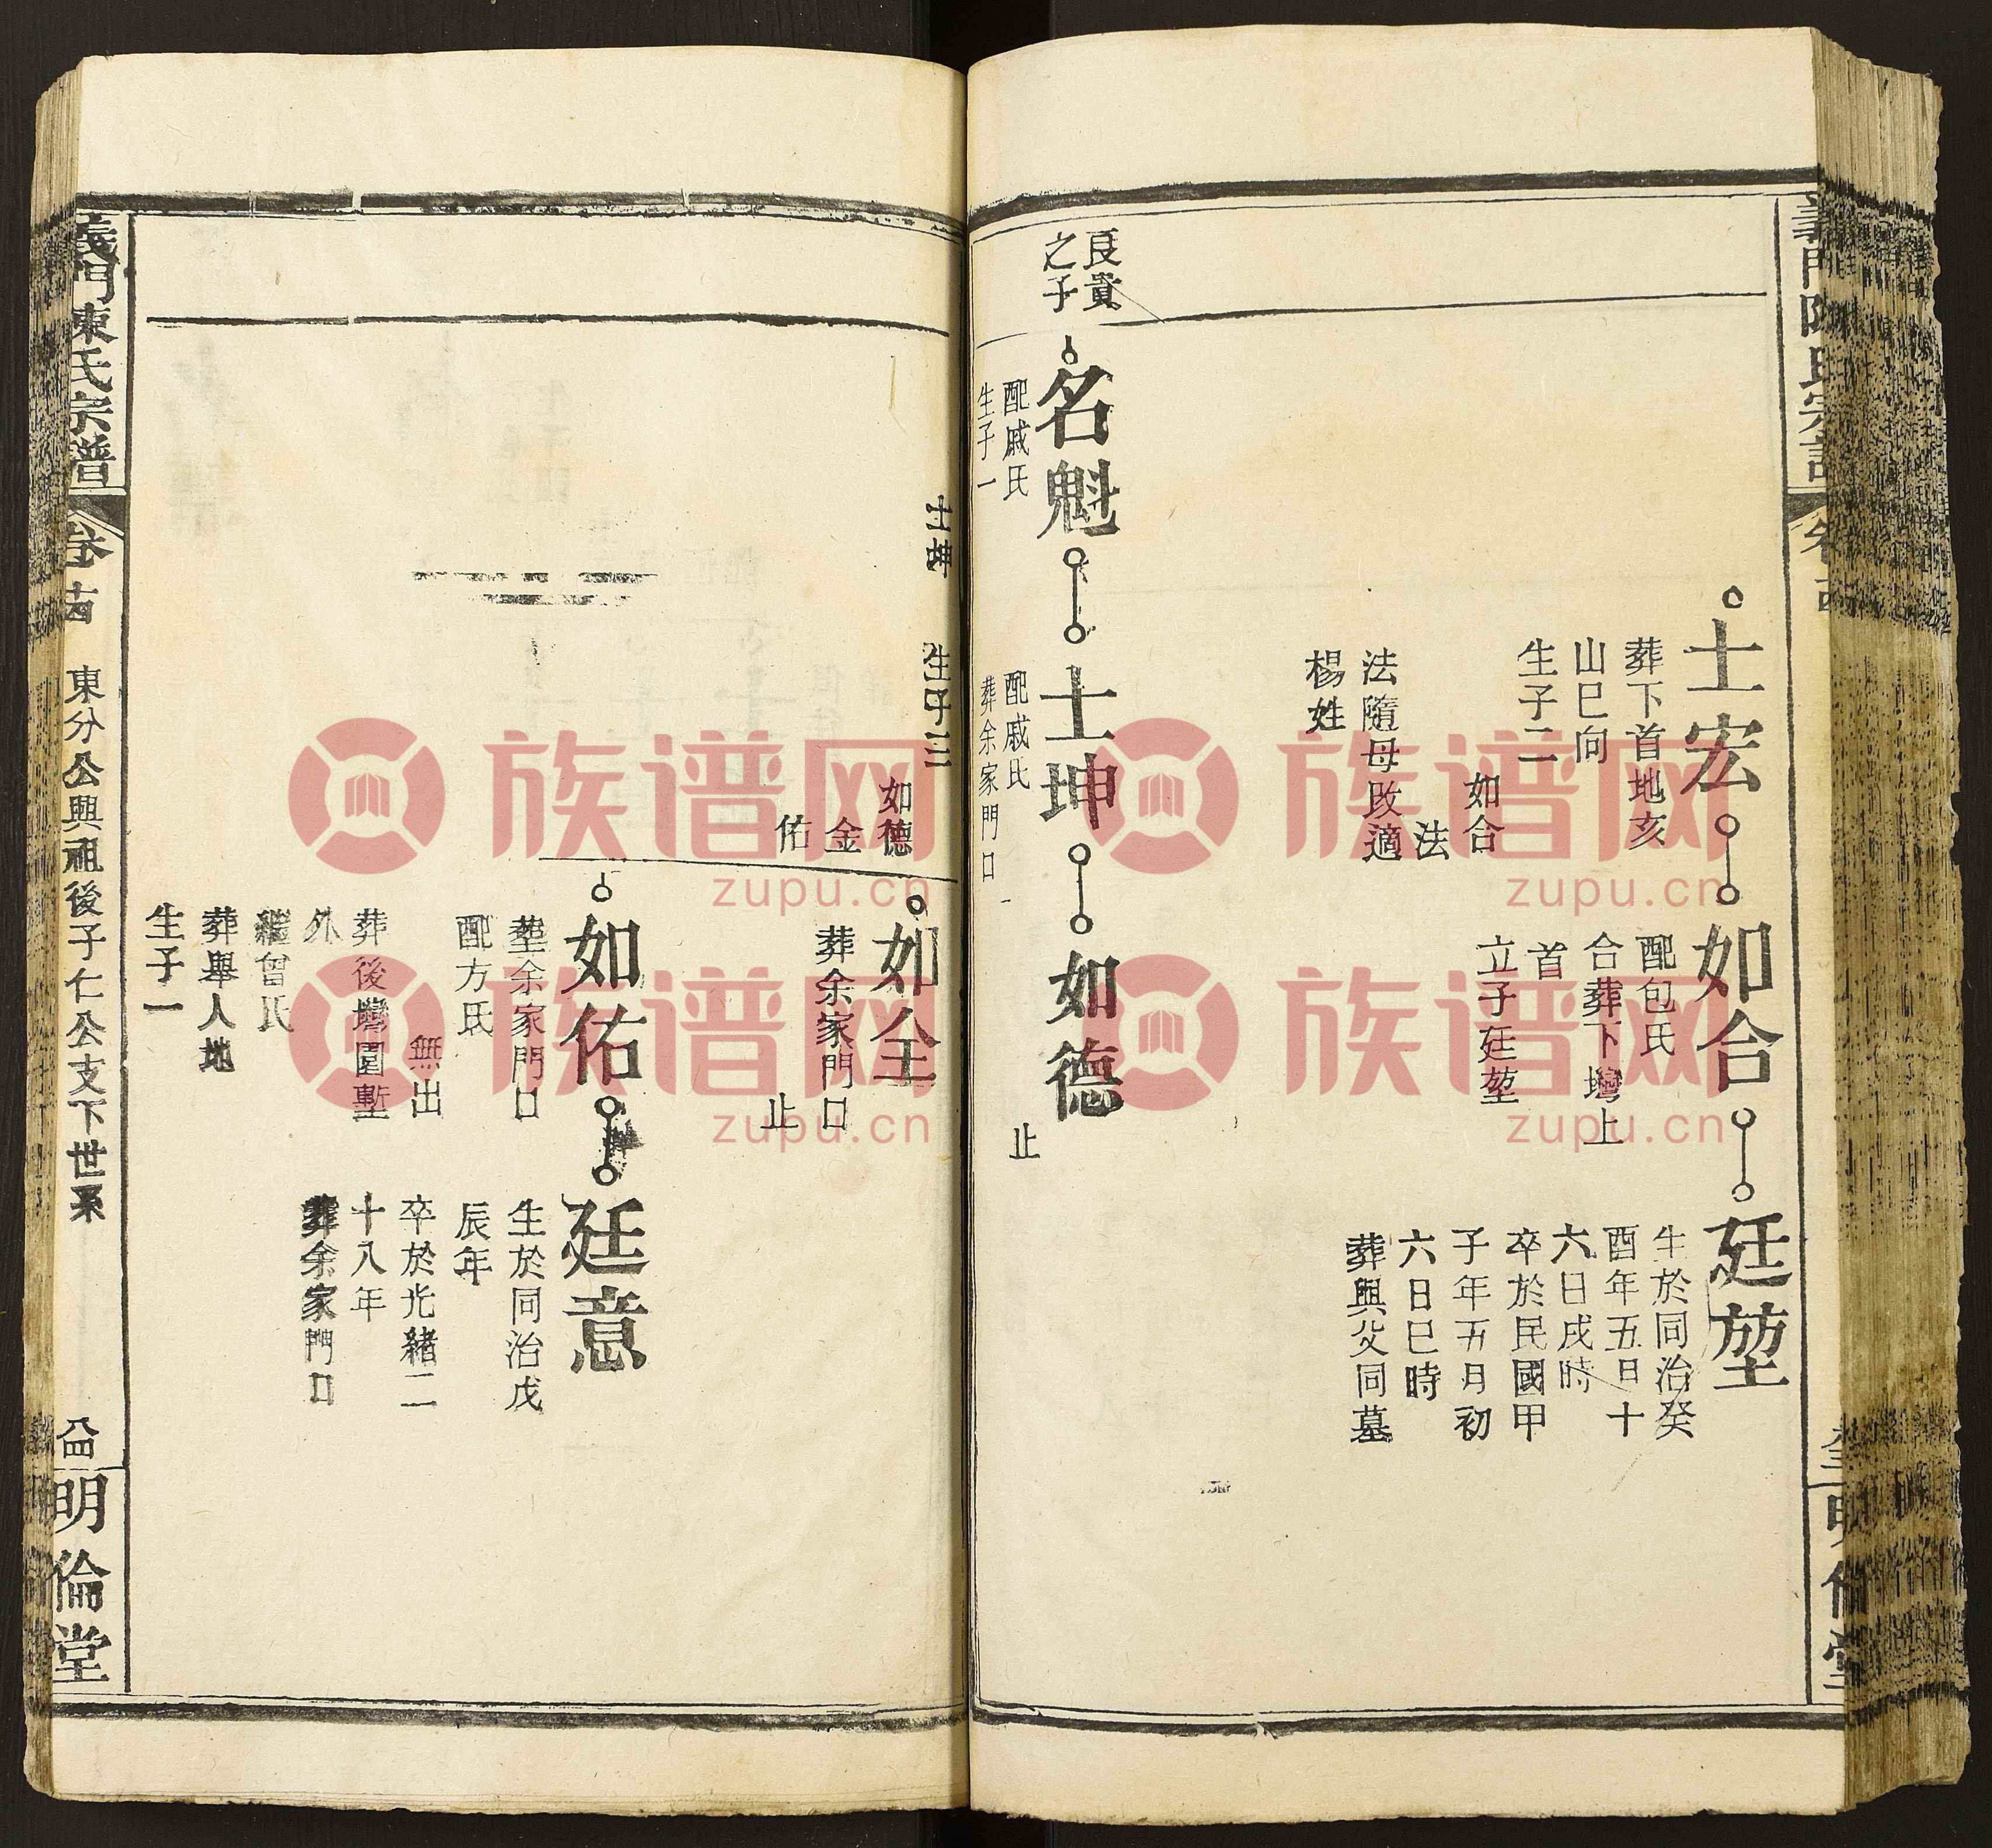 義門陳氏宗譜
明倫堂
士宏
葬下首地亥
山巳向
生子二
如合
法
法隨母改適
楊姓
如合
配包氏
合葬下塆上
首
立子廷堃
廷堃
生於同治癸
酉年五日十
六日戌時
卒於民國甲
子年五月初
六日巳時
葬與父同墓
良貴
之子
名魁
配戚氏
生子一
士坤
配戚氏
葬余家門口
如德
止
士坤
生子三
如德
金
佑
如全
葬余家門口
止
如佑
葬余家門口
配方氏
無出
葬後塆園塹
外
繼曾氏
葬舉人地
生子一
廷意
生於同治戊
辰年
卒於光緒二
十八年
葬余家門口
義門陳氏宗譜
卷十四
東分公興祖後子仁公支下世系
八四
明倫堂
族谱网
zupu.cn
族谱网
zupu.cn
族谱网
zupu.cn
族谱网
zupu.cn